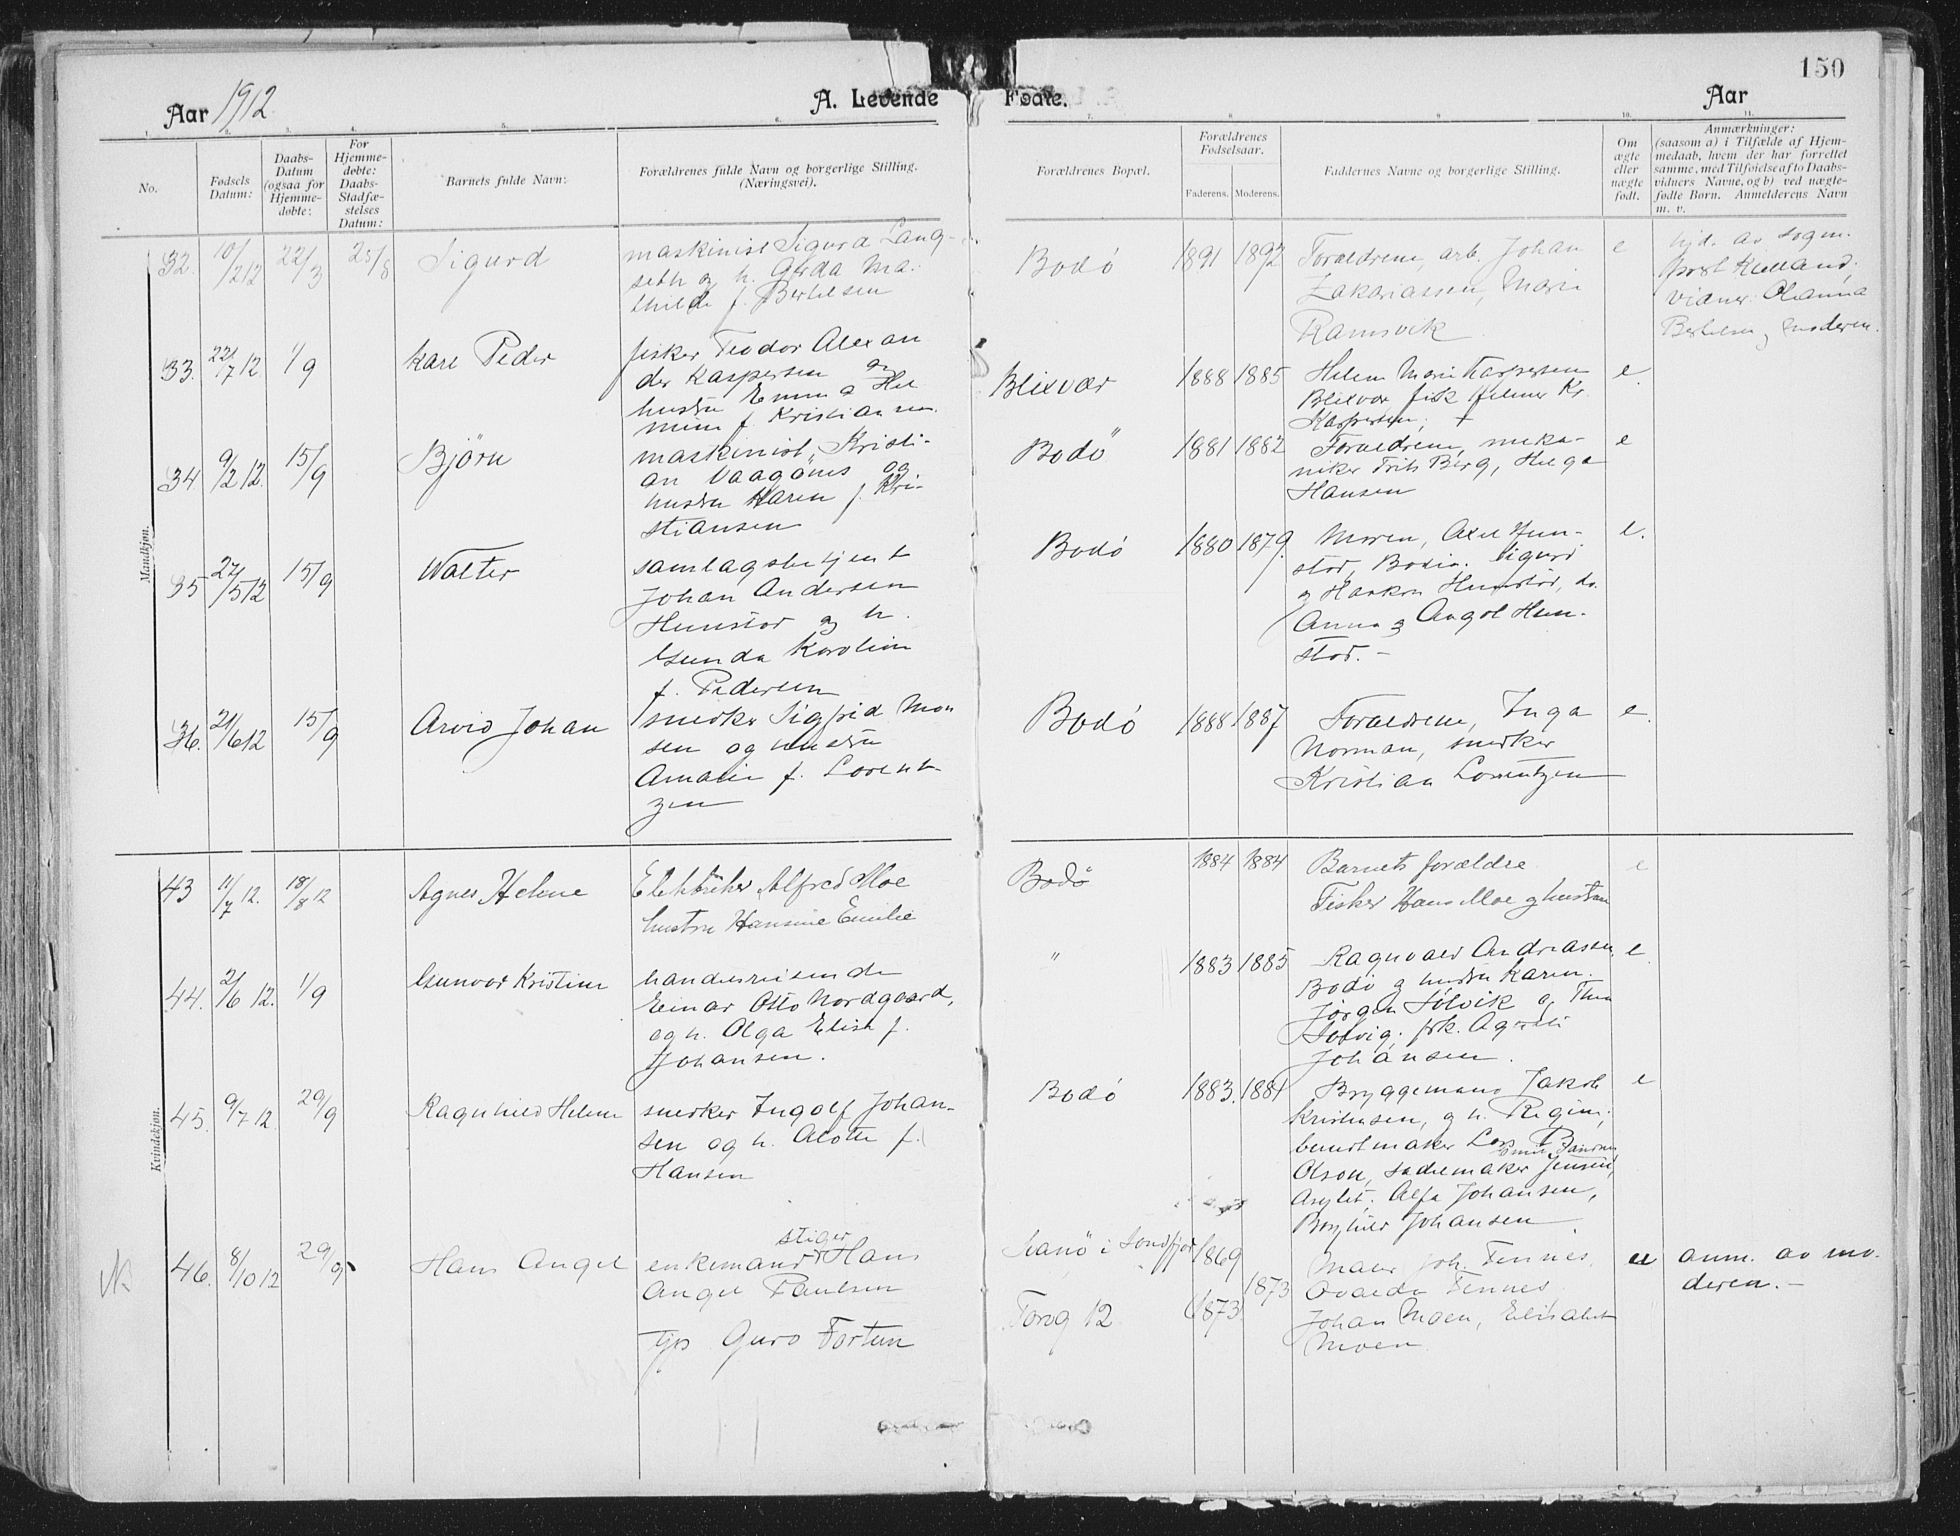 150
Aar 1912
A. Levende Fødte.
Aar
1. 2. 3. 4. 5. 6. 7. 8. 9. 10. 11.
No.
Fødsels Datum:
Daabs-Datum (ogsaa for Hjemmedøbte:
For Hjemmedøbte: Daabs-Stadfæstelses Datum:
Barnets fulde Navn:
Forældrenes fulde Navn og borgerlige Stilling. (Næringsvei).
Forældrenes Bopæl.
Forældrenes Fødselsaar.
Faderens. Moderens.
Faddernes Navne og borgerlige Stilling.
Om ægte eller nægte født.
Anmærkninger:
(saasom a) i Tilfælde af Hjem-
medaab, hvem der har forrettet
samme, med Tilføielse af to Daabs-
vidners Navne, og b) ved nægte-
fødte Børn. Anmelderens Navn
m. v.
Mandkjøn.
32. 10/2 12 22/3 25/8 Sigurd
maskinist Sigurd Lang-
seth og h. Gerda Ma-
thilde f. Bertelsen
Bodø 1891 1892
Forældrene, arb. Johan
Zakariassen, Marie
Ramsvik
e
hjd. av sogn.
prest
vidner: Oleanna
Bertelsen og moderen.
33. 22/7 12. 1/9 Kare Peder
fisker Teodor Alexan
der Kaspersen og
hustru Emma Hel
mine f. Kristiansen.
Blixvær 1888 1885
Helene Marie Kaspersen
Blixvær fisk Hilmer Kr.
Kaspersen; +
e.
34 9/2 12. 15/9 Bjørn
maskinist, Kristi-
an Vaagønes og
hustru Karen f. Kri-
stiansen
Bodø 1881 1882
Forældrene, meka-
niker Frits Berg, Helga
Hansen
e
35 27/5 12 15/9 Walter
samlagsbetjent
Johan Andersen
Hunstad og h.
Gunda Karoline
f. Pedersen
Bodø 1880 1879.
Moren, Axel Hun-
stad, Bodin. Sigurd
og Haakon Hunstad, do.
Anna og Angel Hun-
stad. -
e.
36. 21/6 12 15/9 Arvid Johan
snedker Sigfrid Mon
sen og hustru
Amalie f. Lorent-
zen
Bodø 1888 1887
Forældrene, Inga
Norman, snedker
Kristian Lorentzen
e.
Kvindekjøn.
43 11/7 12. 18/8 12 Agnes Helene
Elektriker Alfred Moe
hustru Hansine Emilie
Bodø 1884 1884
Barnets forældre
Fisker Hans Moe og hustru
e
44. 2/6 12. 1/9 Gunvor Kristine
handelsreisende
Einar Otto Nordgaard,
og h. Olga Elise f.
Johansen.
" 1883 1885
Ragnvald Andreassen,
Bodø og hustru Karen.
Jørgen Sølvik og Thea
Solvig; frk.
Johansen.
e.
45. 9/7 12. 29/9 Ragnhild Helene
snedker Ingolf Johan-
sen og h. Alette f.
Hansen
Bodø 1883. 1881
Bryggemand Jakob
Kristensen, og h. Regine;
buntmaker Lars
Olson, sadlemaker Jensen,
Asylet; Alfa Johansen,
Borghild Johansen
e
NB 46. 8/10 12 29/9 Hans Angel
enkemand stiger Hans
Angel Paulsen
tjp Guro Fortun
i Søndfjord 1869
1873
Torvg 12 1873
Maler Joh. Tennes,
Ovaldu Tennes
Johan Moen, Elisabet
Moen
u
anm. av mo-
deren. -